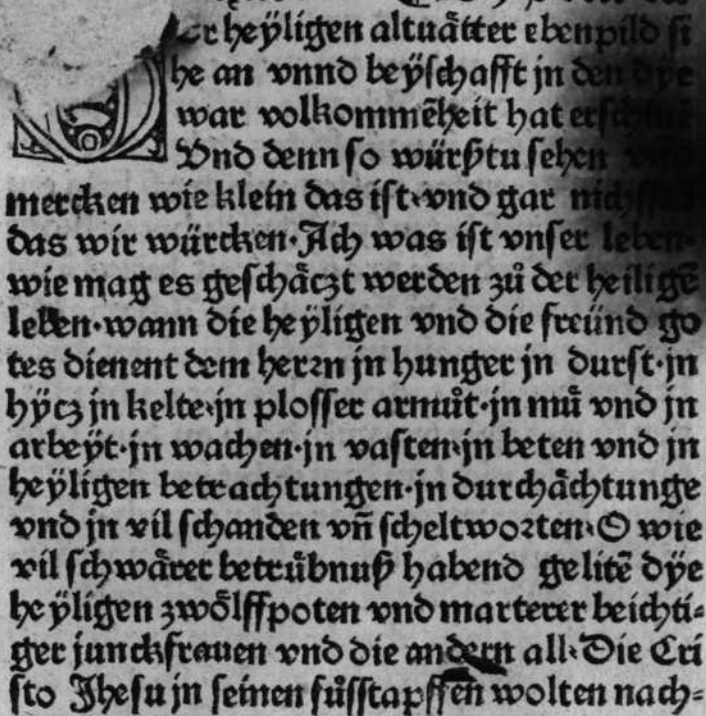 Der heÿligen altuåtter ebenpild si
he an vnnd beÿſchafft jn den dÿe
war volkommēheit hat
Vnd denn ſo würßtu ſehen vnd
mercken wie klein das iſt·vnd gar
das wir würcken·Ach was iſt vnſer leben·
wie mag es geſchåczt werden zů der heiligē
leben·wann die heÿligen vnd die freünd go
tes dienent dem herꝛn jn hunger jn durſt·jn
hÿcz jn kelte·jn ploſſer armůt·jn mů vnd jn
arbeÿt·jn wachen·jn vaſten·jn beten vnd jn
heÿligen betrachtungen·jn durchåchtunge
vnd jn vil ſchanden vñ ſcheltwoꝛten·O wie
vil ſchwårer betrůbnuß habend gelitē dÿe
heÿligen zwölffpoten vnd marterer beichti⸗
ger junckfrauen vnd die andern all·Die Cri
ſto Jheſu jn ſeinen fůſſtapffen wolten nach⸗